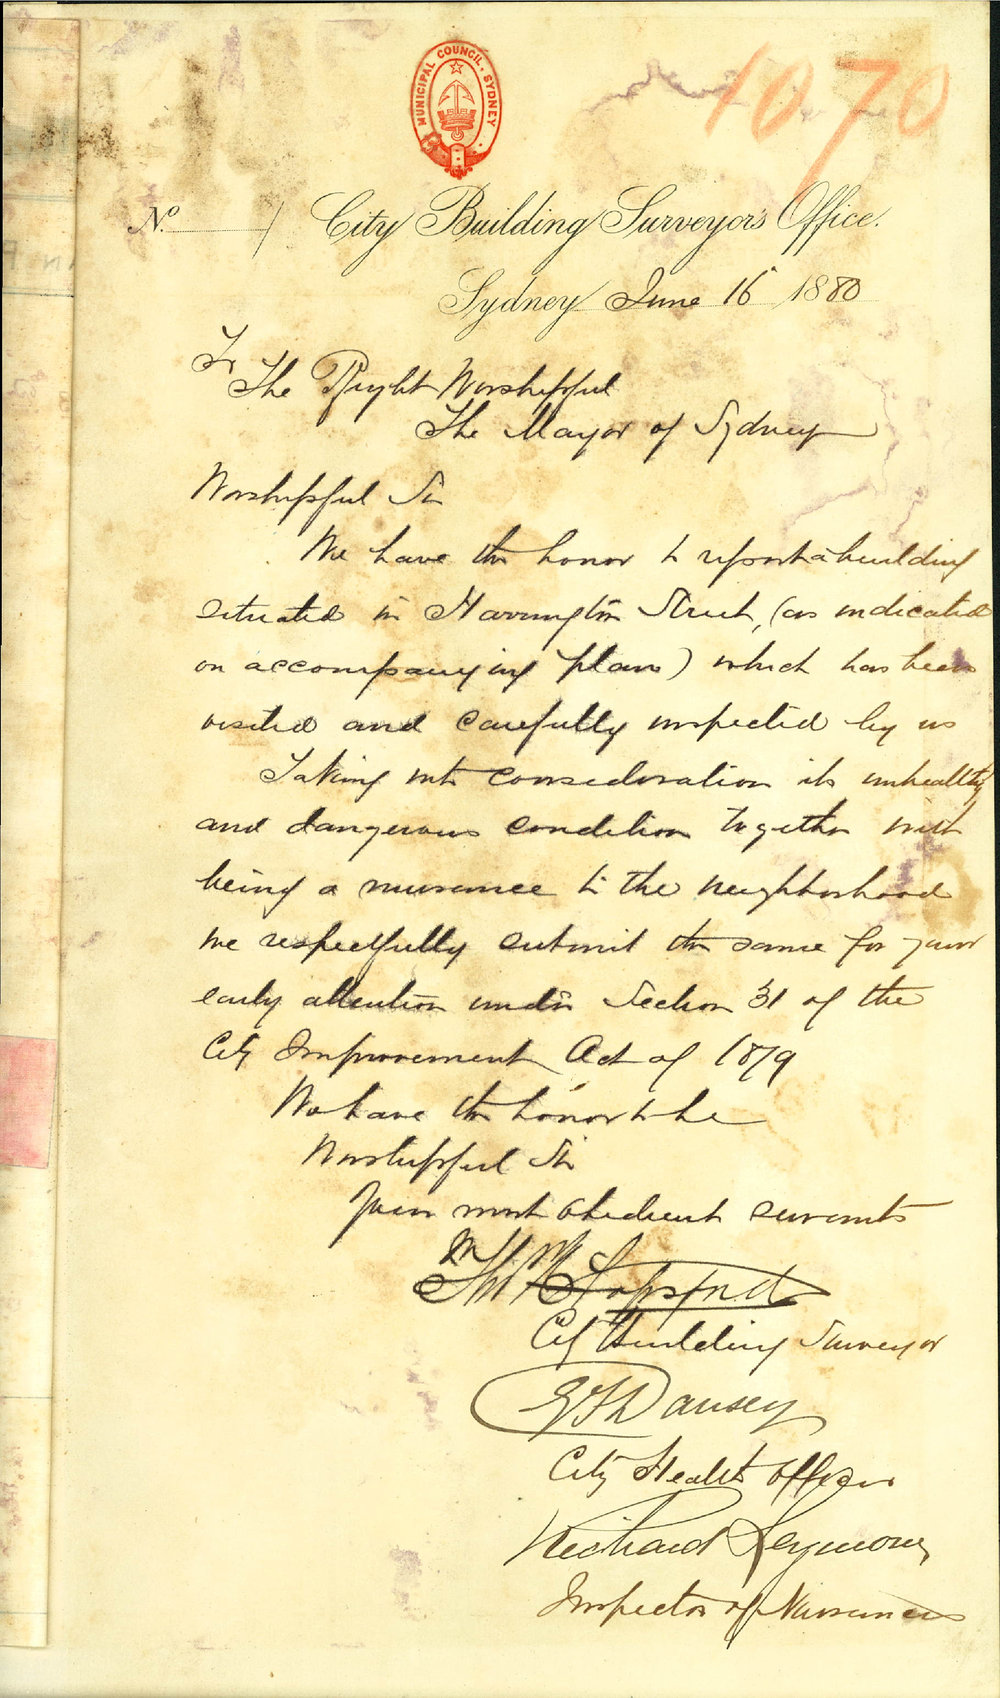 MUNICIPAL COUNCIL. SYDNEY
1070
No. City Building Surveyor's Office.
Sydney June 16 1880
To The Right Worshipful
The Mayor of Sydney
Worshipful Sir
We have the honor to report a building
situated in Harrington Street, (as indicated
on accompanying plan) which has been
visited and carefully inspected by us
Taking into consideration its unhealthy
and dangerous condition together with
being a nuisance to the neighborhood
we respectfully submit the same for your
early attention under Section 31 of the
City Improvement Act of 1879
We have the honor to be
Worshipful Sir
Your most obedient servants
City Building Surveyor
G F Dansey
City Health Officer
Richard Seymour
Inspector of Nuisances